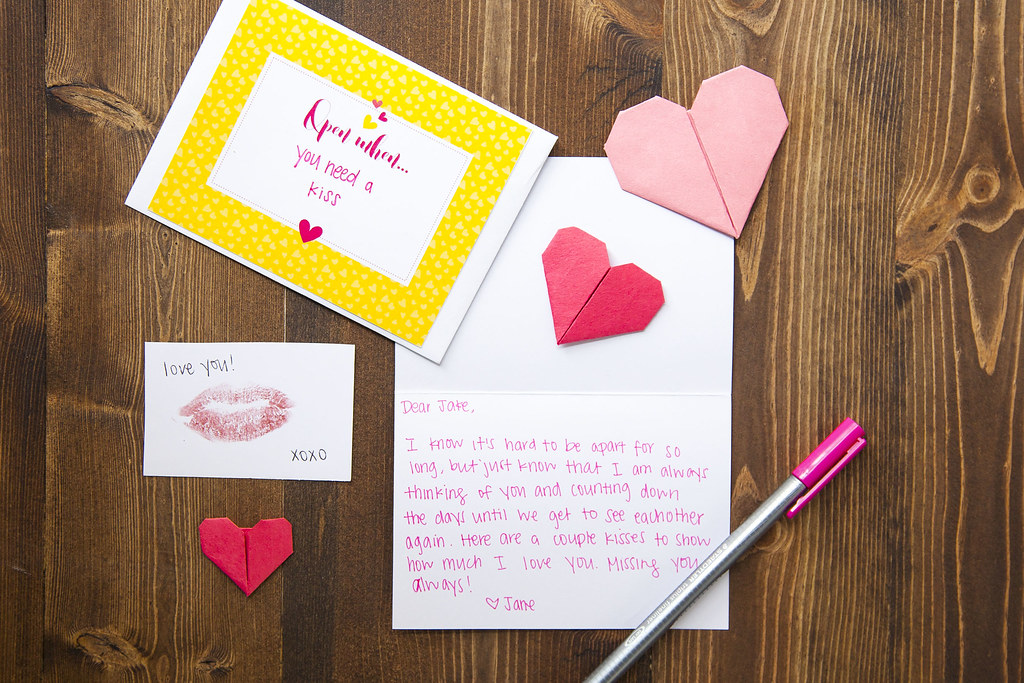 Open when...
you need a
kiss
love you!
xoxo
Dear Jake,
I know it's hard to be apart for so
long, but just know that I am always
thinking of you and counting down
the days until we get to see eachother
again. Here are a couple kisses to show
how much I love you. Missing you
always!
♡ Jane